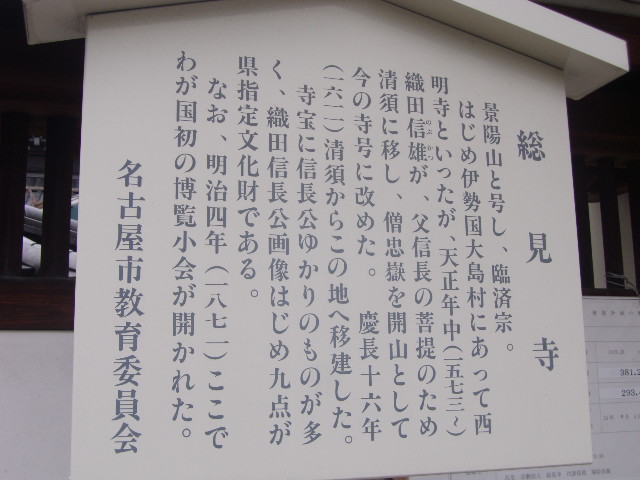 総見寺
景陽山と号し、臨済宗。
はじめ伊勢国大島村にあって西
明寺といったが、天正年中(一五七三〜)
織田信雄が、父信長の菩提のため
のぶかつ
清須に移し、僧忠嶽を開山として
今の寺号に改めた。 慶長十六年
(一六一一)清須からこの地へ移建した。
寺宝に信長公ゆかりのものが多
く、織田信長公画像はじめ九点が
県指定文化財である。
なお、明治四年(一八七一)ここで
わが国初の博覧小会が開かれた。
名古屋市教育委員会
381.2
293.4